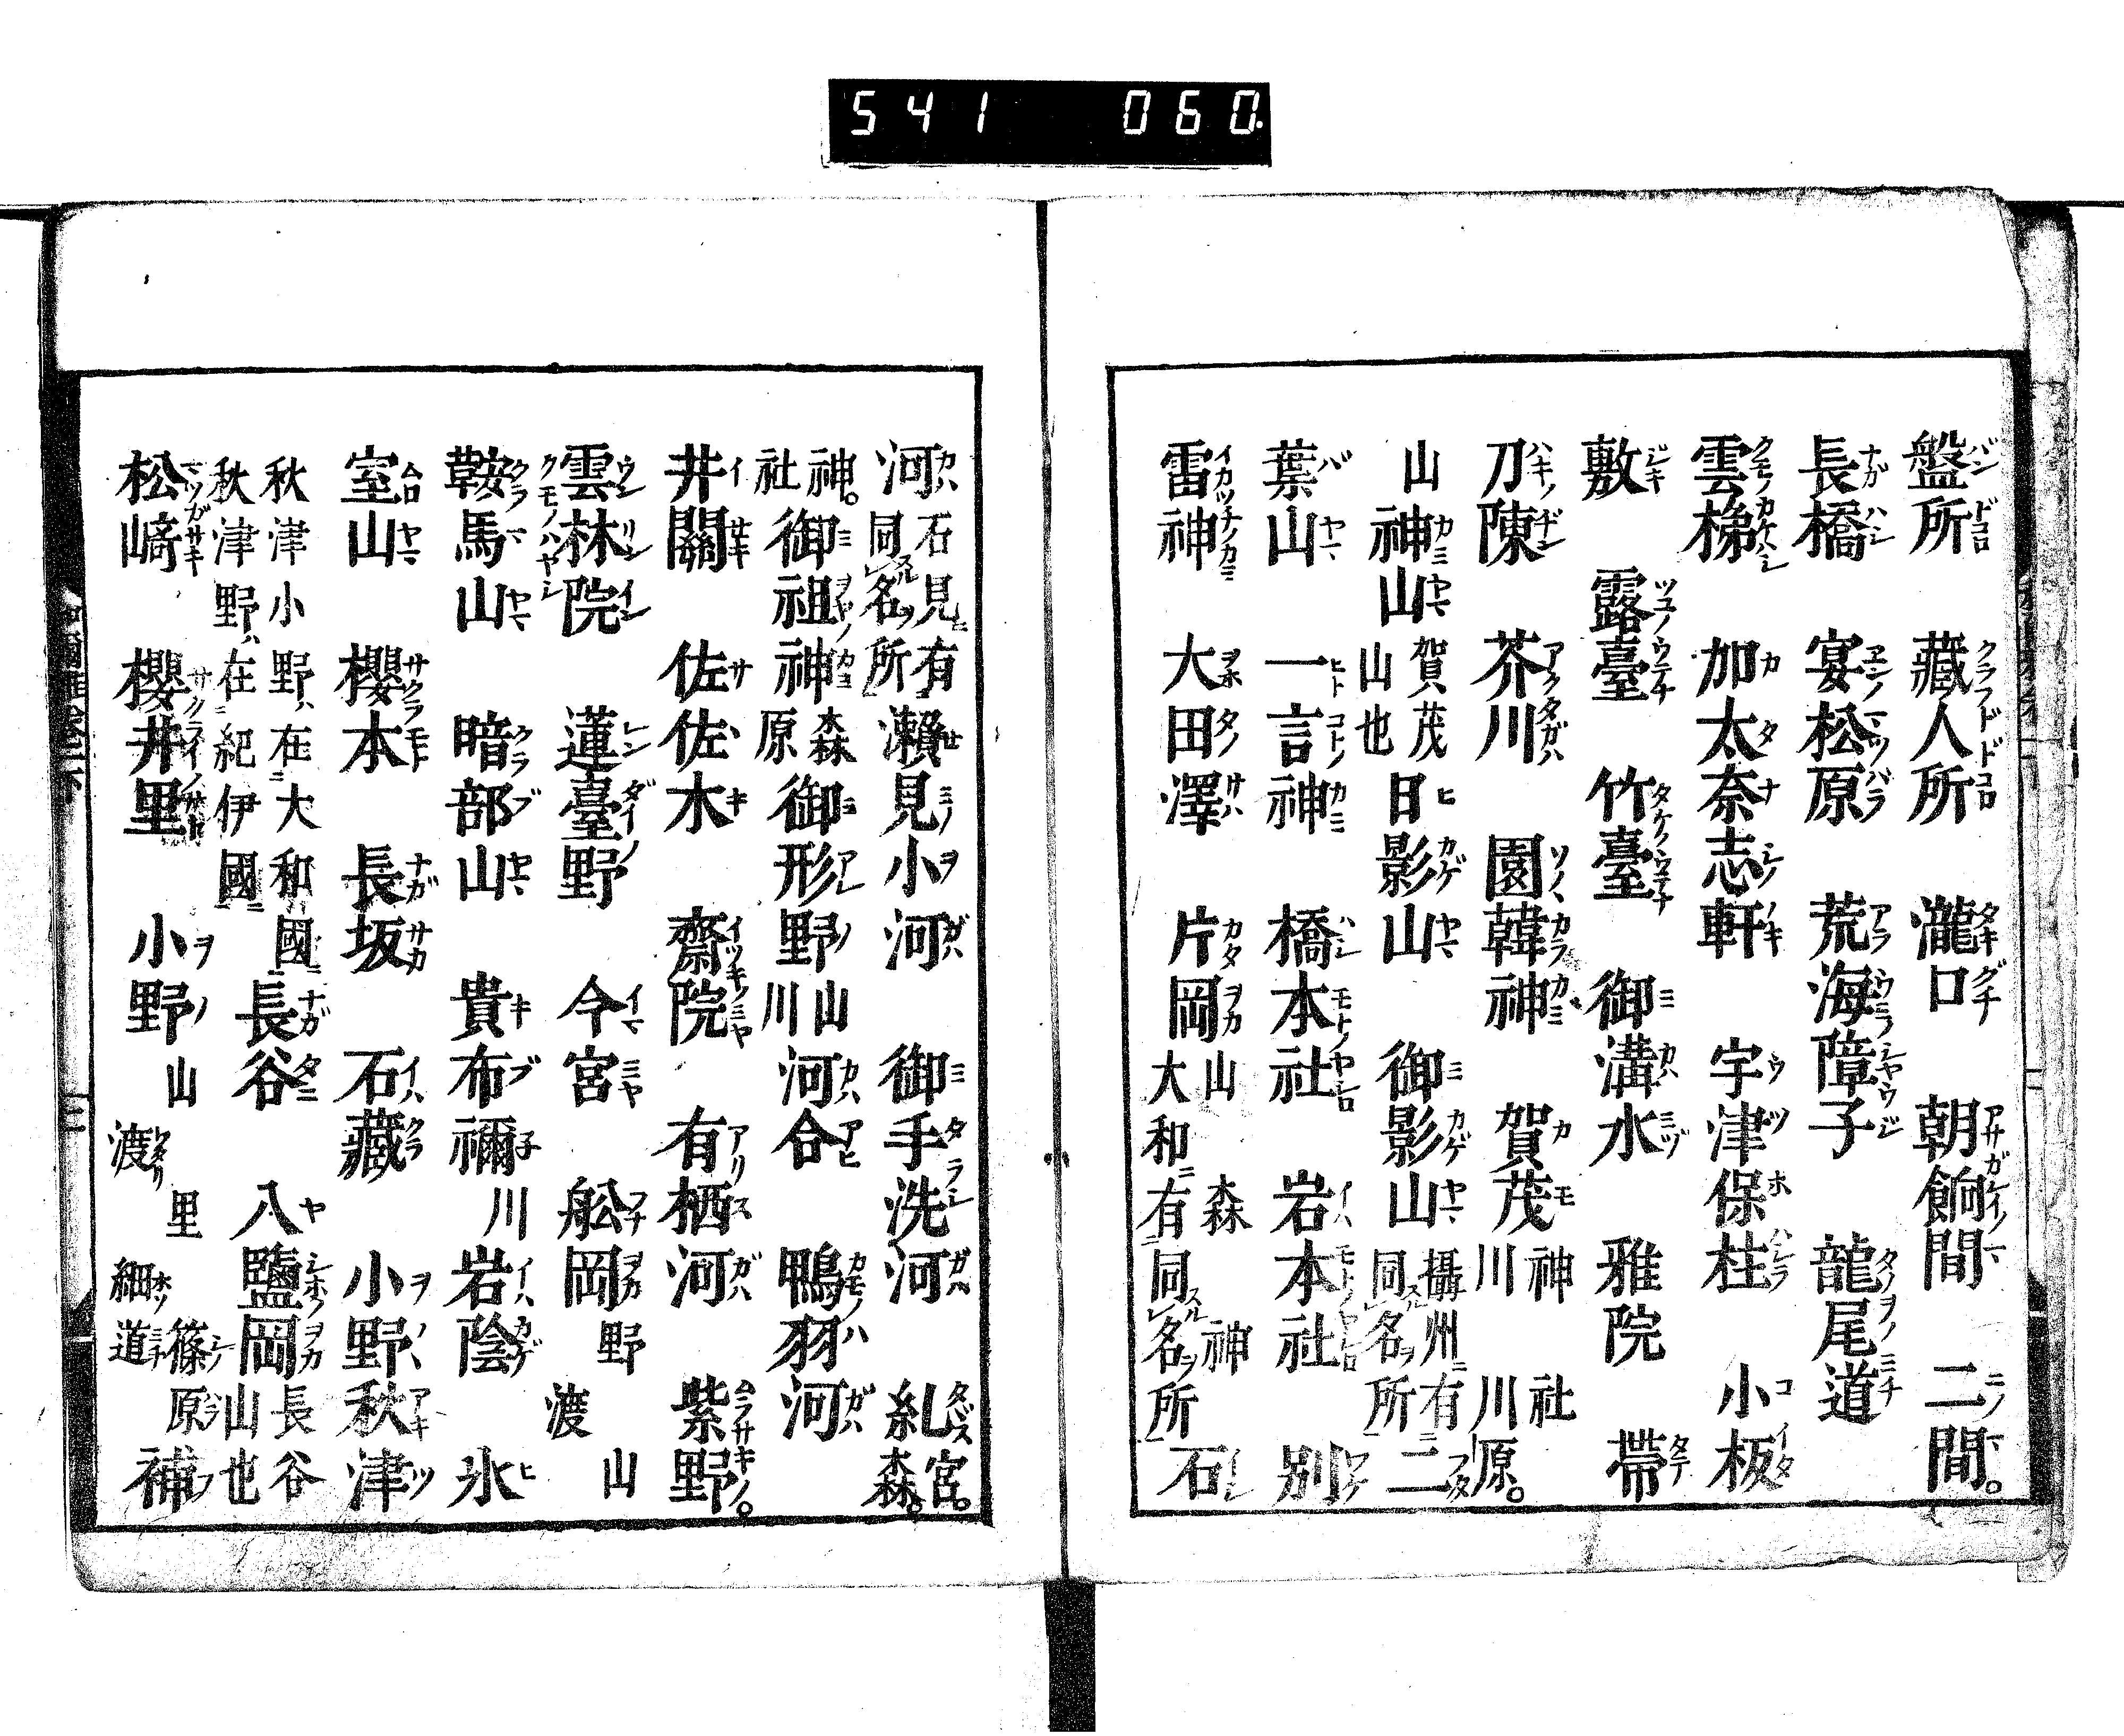 541 060.
盤所 藏人所 瀧口 朝餉間 二間。
長橋 宴松原 荒海障子 龍尾道
雲梯 加太奈志軒 宇津保柱 小板
敷 露臺 竹臺 御溝水 雅院 帶
刀陳 芥川 園韓神 賀茂 神川 社川原。
山 神山 賀茂山也 日影山 御影山 攝州ニ有同スルレ名ヲ所 二
葉山 一言神 橋本社 岩本社 別
雷神 大田澤 片岡 山 森 神 大和ニ有同スルレ名ヲ所 石
河 石見ニ有同スルレ名ヲ所 瀨見小河 御手洗河 糺 宮。森。
神。社 御祖神 森原 御形野 山川 河合 鴨羽河
井關 佐佐木 齋院 有栖河 紫野。
雲林院 蓮臺野 今宮 舩岡 野 山 渡
鞍馬山 暗部山 貴布禰 川 岩陰 氷
室山 櫻本 長坂 石藏 小野 秋津
秋津小野ハ在大和國ニ 秋津野ハ在紀伊國ニ 長谷 八鹽岡 長谷山也
松﨑 櫻井里 小野 山 里 篠原 渡 細道 補